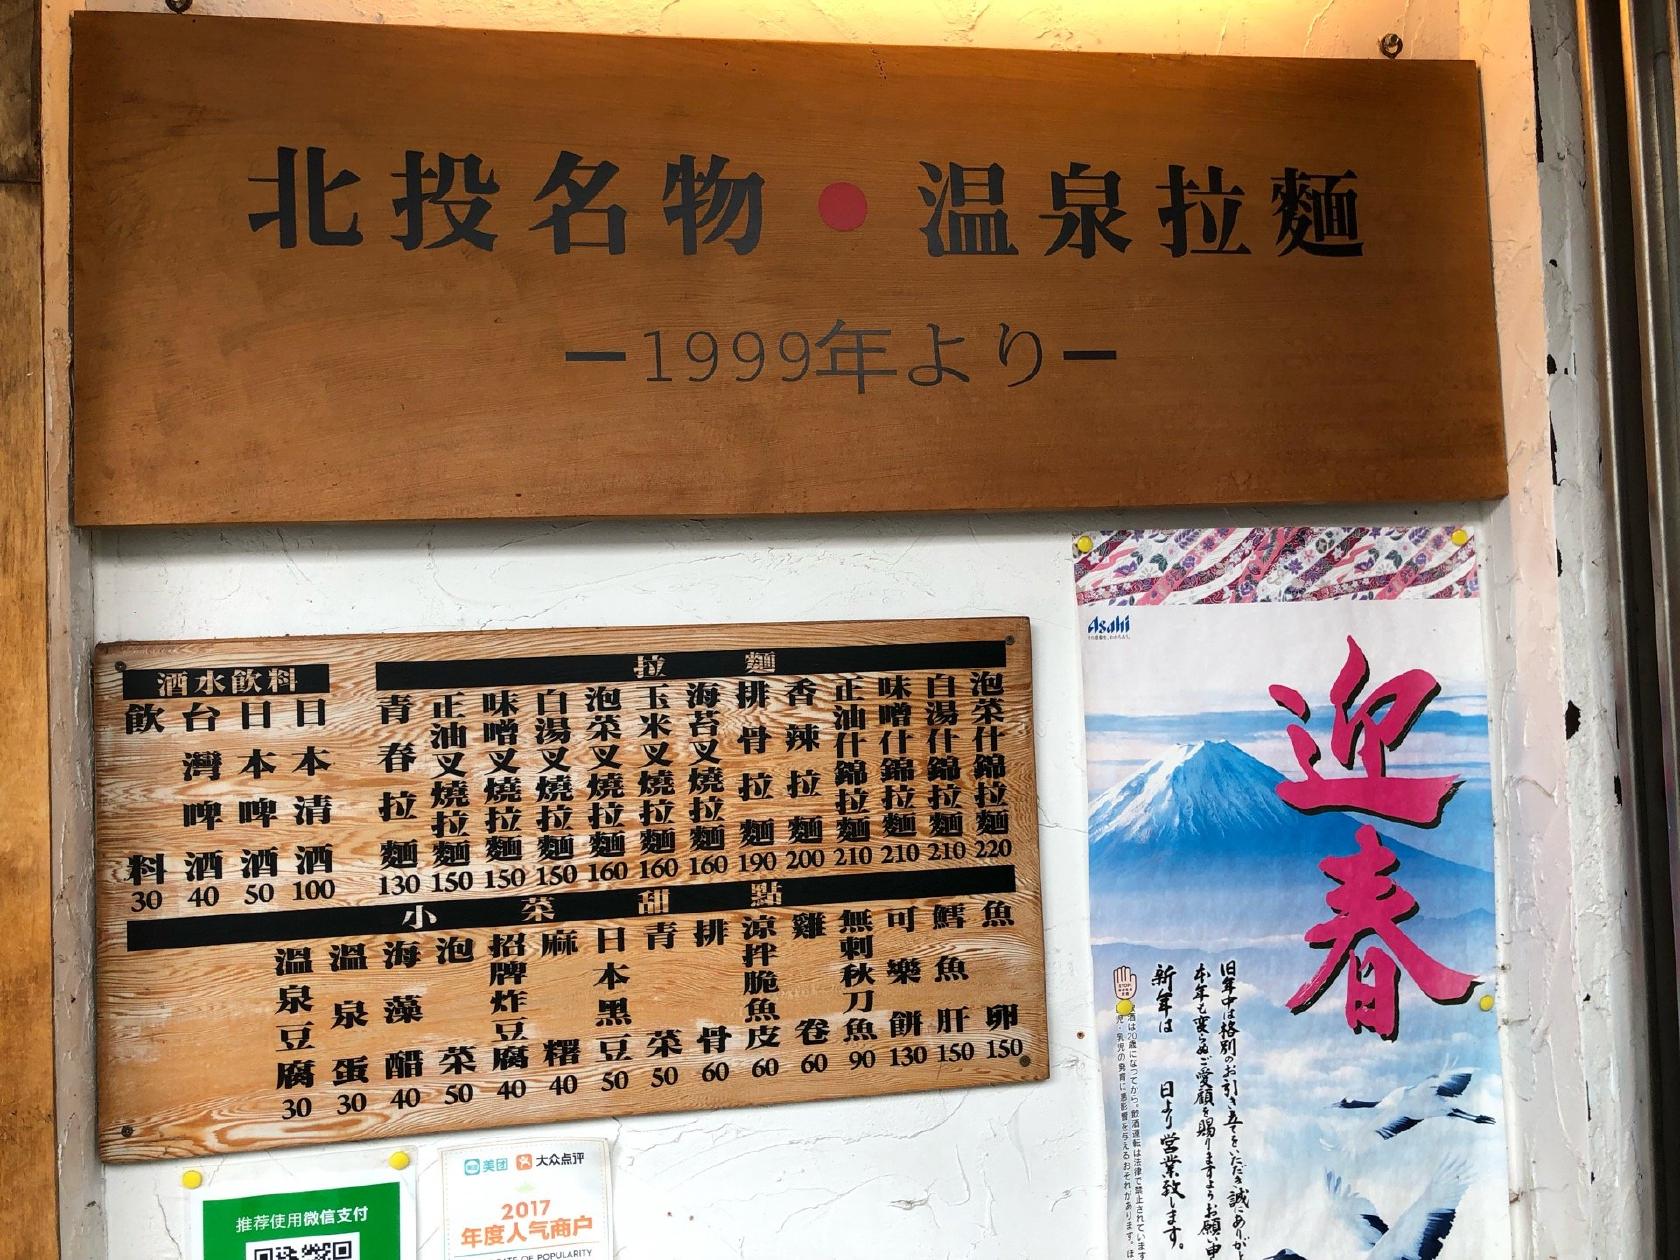 北投名物●温泉拉麵
ー1999年よりー
酒水飲料
飲料 30
台灣啤酒 40
日本啤酒 50
日本清酒 100
拉麵
青春拉麵 130
正油叉燒拉麵 150
味噌叉燒拉麵 150
白湯叉燒拉麵 150
泡菜叉燒拉麵 160
玉米叉燒拉麵 160
海苔叉燒拉麵 160
排骨拉麵 190
香辣拉麵 200
正油什錦拉麵 210
味噌什錦拉麵 210
白湯什錦拉麵 210
泡菜什錦拉麵 220
小菜甜點
溫泉豆腐 30
溫泉蛋 30
海藻醋 40
泡菜 50
招牌炸豆腐 40
麻糬 40
日本黑豆 50
青菜 50
排骨 60
涼拌脆魚皮 60
雞卷 60
無刺秋刀魚 90
可樂餅 130
鱈魚肝 150
魚卵 150
Asahi
迎春
旧年中は格別のお引き立てをいただき誠にありがと
本年も変らぬご愛顧を賜りますようお願い申
新年は 日より営業致します。
STOP!
推荐使用微信支付
美团 大众点评
2017
年度人气商户
OF POPULARITY